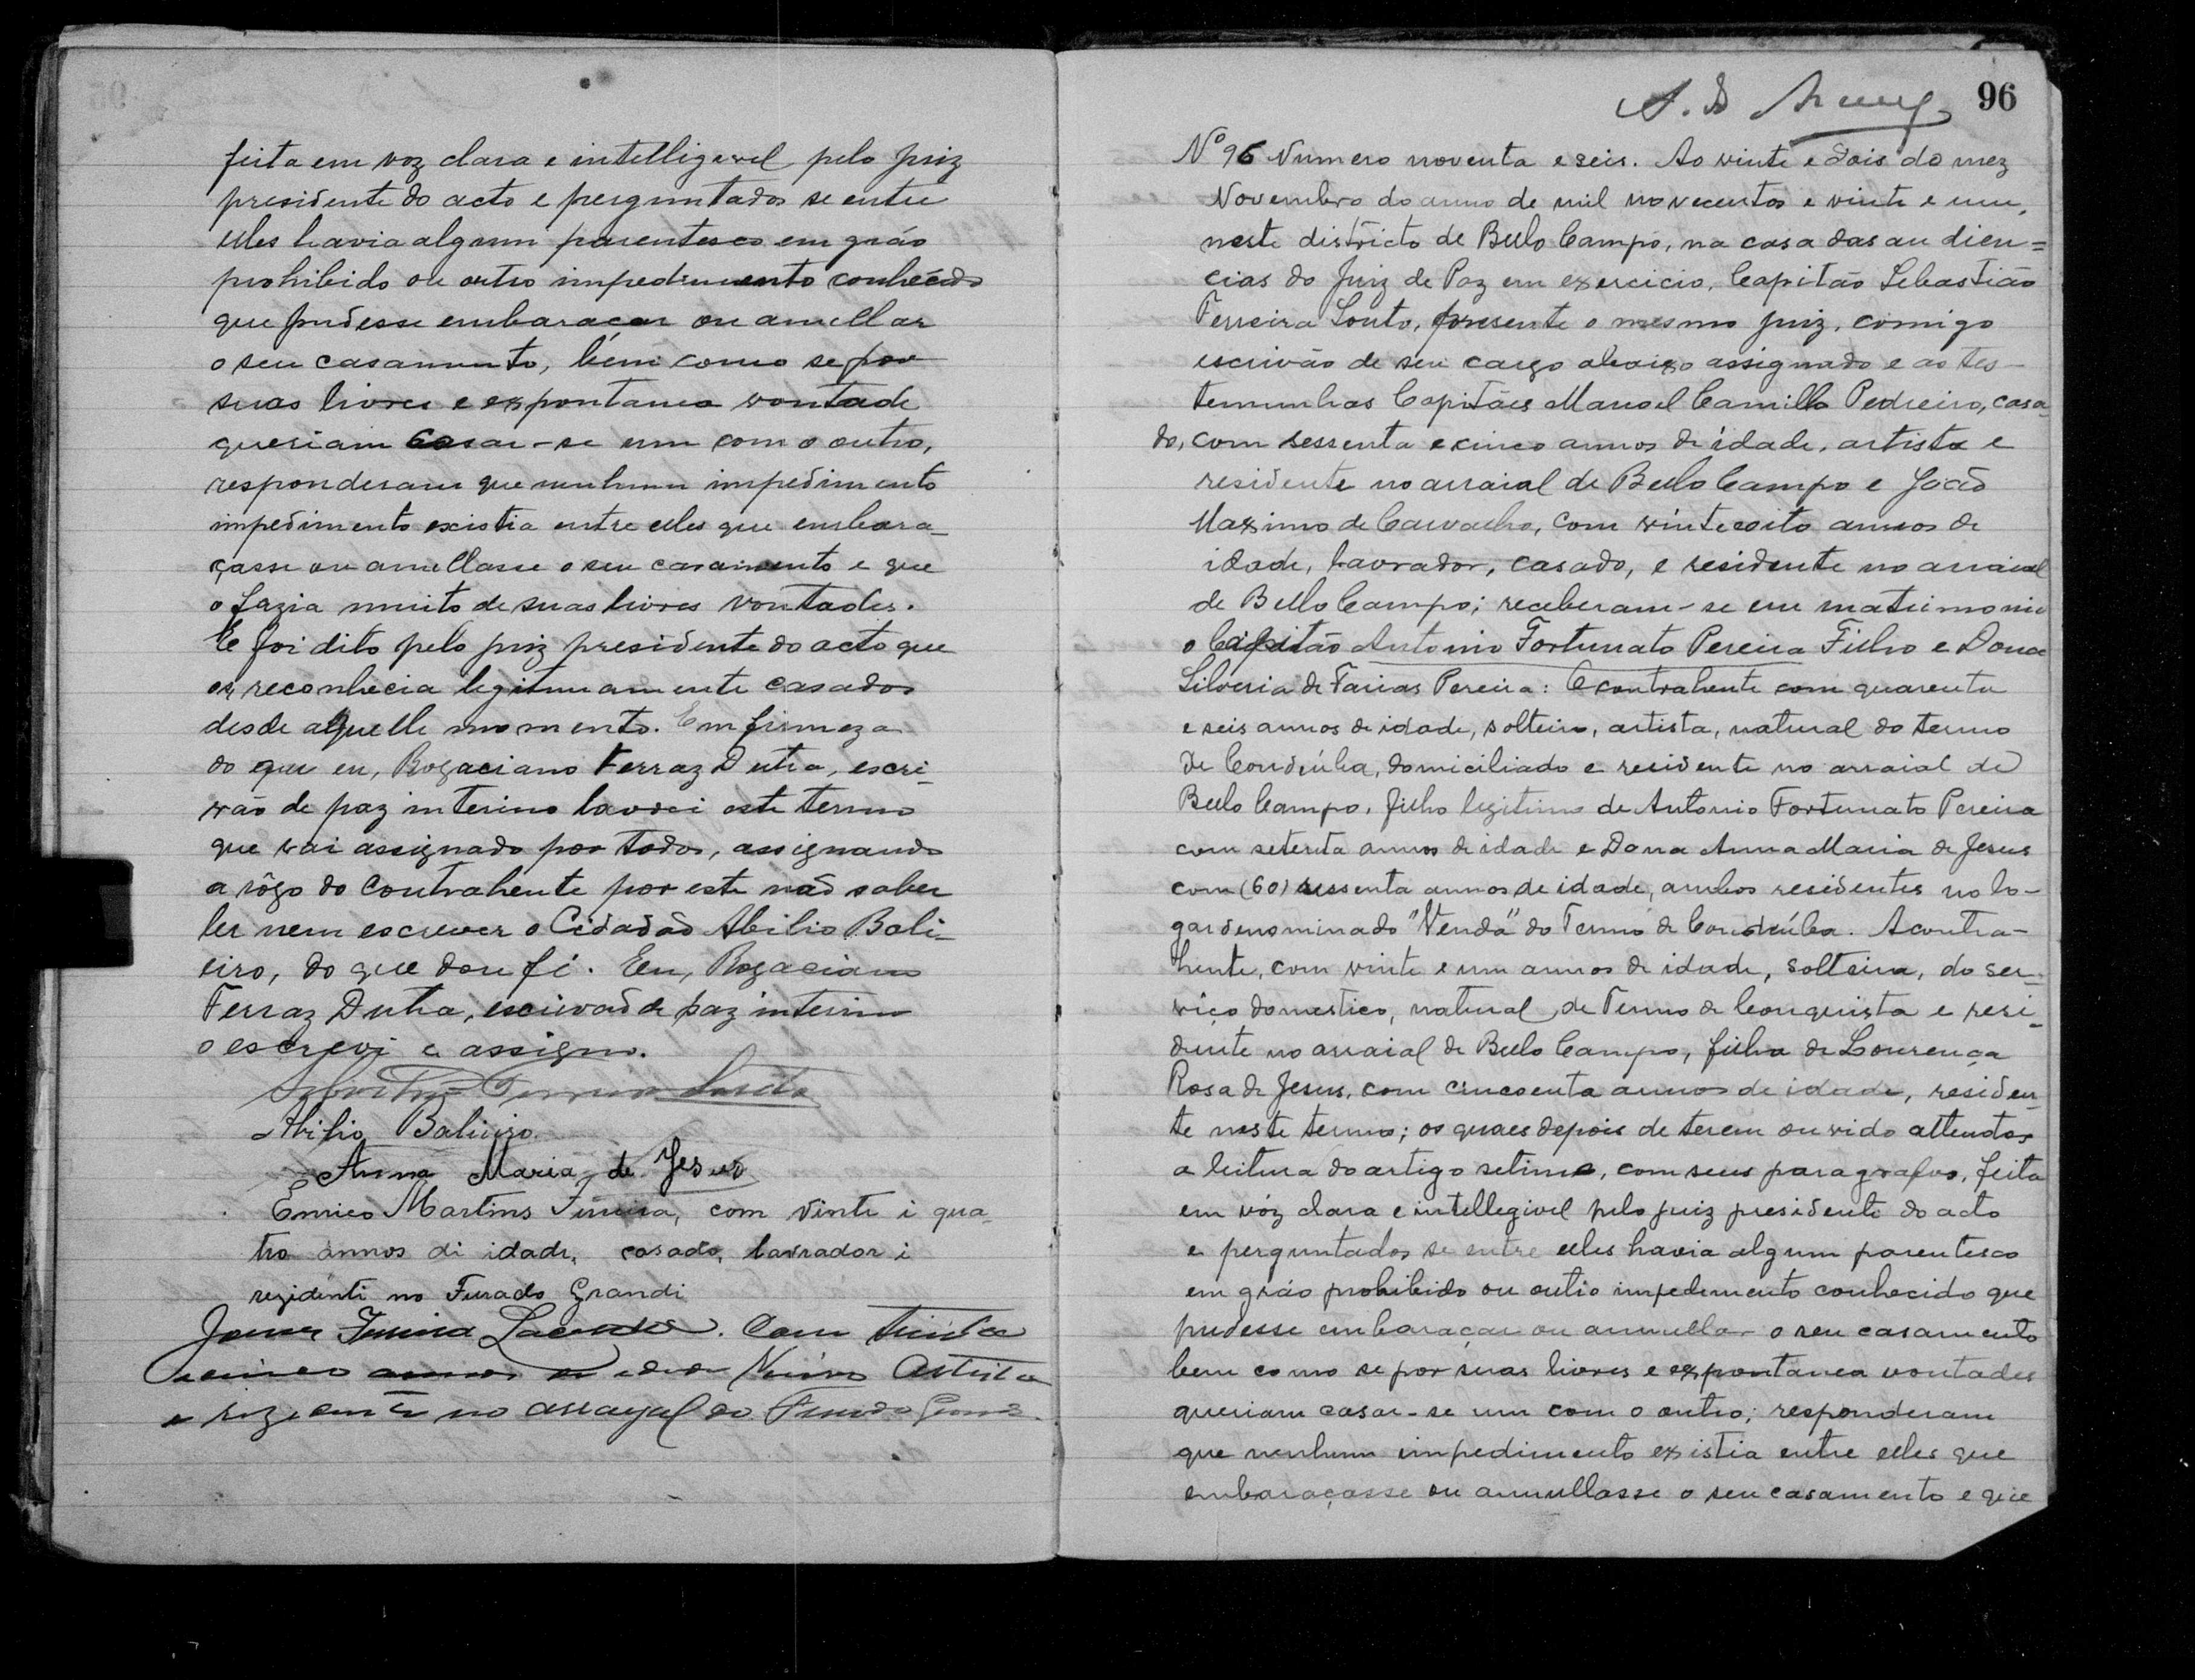 feita em voz clara e intelligevel pelo juiz
presidente do acto e perguntados se entre
elles havia algum parentesco em gráo
prohibido ou outro impedimento conhecido
que pudesse embaraçar ou anullar
o seu casamento, bem como se por
suas livres e expontanea vontade
queriam casar-se um com o outro,
responderam que nenhum impedimento
impedimento existia entre elles que embara-
çasse ou anullasse o seu casamento e que
o fazia muito de suas livres vontades.
E foi dito pelo juiz presidente do acto que
os reconhecia legitimamente casados
desde aquelle momento. Em firmeza
do que eu, Rogaciano Ferraz Dutra, escri-
vão de paz interino lavrei este termo
que vai assignado por todos, assignando
a rôgo do contrahente por este não saber
ler nem escrever o Cidadão Abilio Bali-
eiro, do que dou fé. Eu, Rogaciano
Ferraz Dutra, escrivão de paz interino
o escrevi e assigno.
Sebastião Ferreira Souto
Abilio Balieiro.
Anna Maria de Jesus
Martins com vinte i qua-
tro annos di idade, casado, lavrador i
rezidenti no Furado Grandi
Com trinta
e cinco annos de Artista
e no do
96
Nº 96 Numero noventa e seis. Ao vinte e dois do mez
Novembro do anno de mil novecentos e vinte e um,
neste districto de Bello Campo, na casa das audien=
cias do Juiz de Paz em exercicio, Capitão Sebastião
Ferreira Souto, presente o mesmo juiz, comigo
escrivão de seu cargo abaixo assignado e as tes-
temunhas Capitães Manoel Camillo Pedreiro, casa-
do, com sessenta e cinco annos de idade, artista e
residente no arraial de Bello Campo e João
Maximo de Carvalho, com vinte e oito annos de
idade, lavrador, casado, e residente no arraial
de Bello Campo; receberam-se em matrimonio
o Capitão Antonio Fortunato Pereira Filho e Dona
Silveria de Farias Pereira: O contrahente com quarenta
e seis annos de idade, solteiro, artista, natural do termo
de Condeúba, domiciliado e residente no arraial de
Bello Campo, filho legitimo de Antonio Fortunato Pereira
com setenta annos de idade e Dona Anna Maria de Jesus
com (60) sessenta annos de idade, ambos residentes no lo-
gar denominado "Venda" do Termo de Condeúba. A contra-
hente, com vinte e um annos de idade, solteira, do ser-
viço domestico, natural de Termo de Conquista e resi-
dente no arraial de Bello Campo, filha de Lourença
Rosa de Jesus, com cincoenta annos de idade, residen-
te neste termo; os quaes depois de terem ouvido attentos
a leitura do artigo setimo, com seus paragrafos, feita
em vóz clara e intellegivel pelo juiz presidente do acto
e perguntados se entre elles havia algum parentesco
em gráo prohibido ou outro impedimento conhecido que
pudesse embaraçar ou annullar o seu casamento
bem como se por suas livres e expontanea vontades
queriam casar-se um com o outro; responderam
que nenhum impedimento existia entre elles que
embaraçasse ou annullasse o seu casamento e que